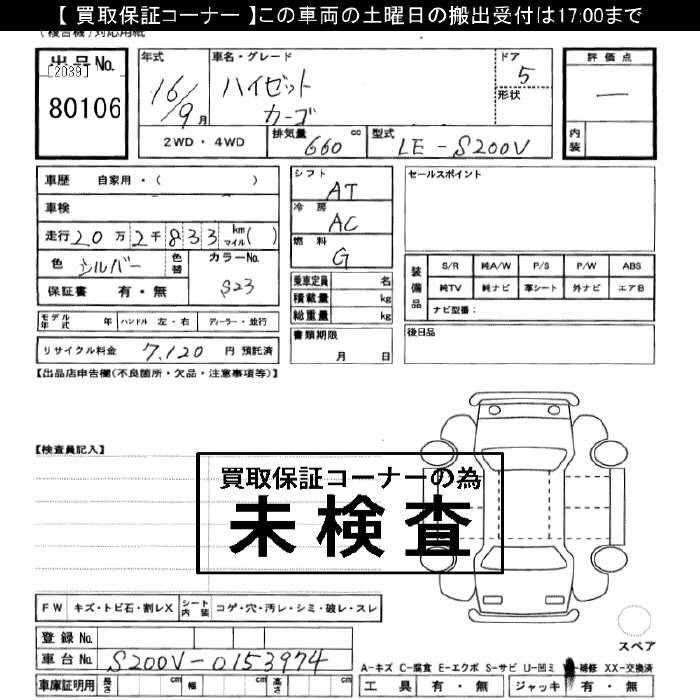 【 買取保証コーナー 】この車両の土曜日の搬出受付は17:00まで
(複合機)対応用紙
出品No.
[2039]
80106
年式
16/9月
車名・グレード
ハイゼット
カーゴ
ドア
5
形状
評価点
—
内装
2WD・4WD
排気量 660 cc
型式 LE-S200V
車歴 自家用・( )
車検
走行 20万2千833 km マイル( )
色 シルバー 色替
カラーNo.
S23
保証書 有・無
モデル年式 年 ハンドル 左・右 ディーラー・並行
リサイクル料金 7,120 円 預託済
シフト
AT
冷房
AC
燃料
G
乗車定員 名
積載量 kg
総重量 kg
書類期限
月 日
セールスポイント
装備品
S/R 純A/W P/S P/W ABS
純TV 純ナビ 革シート 外ナビ エアB
ナビ型番:
後日品
【出品店申告欄(不良箇所・欠品・注意事項等)】
【検査員記入】
買取保証コーナーの為
未検査
FW キズ・トビ石・割レX シート内装 コゲ・穴・汚レ・シミ・破レ・スレ
登録No.
車台No. S200V-0153974
車庫証明用 長さ cm 幅 cm 高さ cm
スペア
A-キズ C-腐食 E-エクボ S-サビ U-凹ミ -補修 XX-交換済
工具 有・無 ジャッキ 有・無